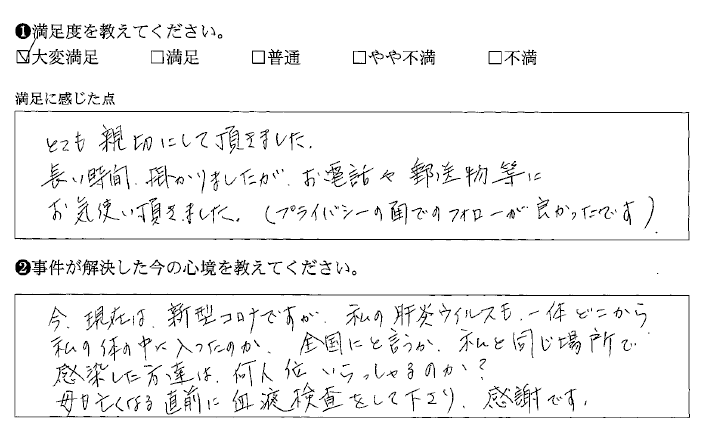 ❶満足度を教えてください。
☑大変満足 □満足 □普通 □やや不満 □不満
満足に感じた点
とても親切にして頂きました.
長い時間.掛かりましたが.お電話や郵送物等に
お気使い頂きました。(プライバシーの面でのフォローが良かったです)
❷事件が解決した今の心境を教えてください。
今.現在は.新型コロナですが.私の肝炎ウイルスも.一体どこから
私の体の中に入ったのか.全国にと言うか.私と同じ場所で
感染した方達は.何人位いらっしゃるのか?
母が亡くなる直前に血液検査をして下さり.感謝です.